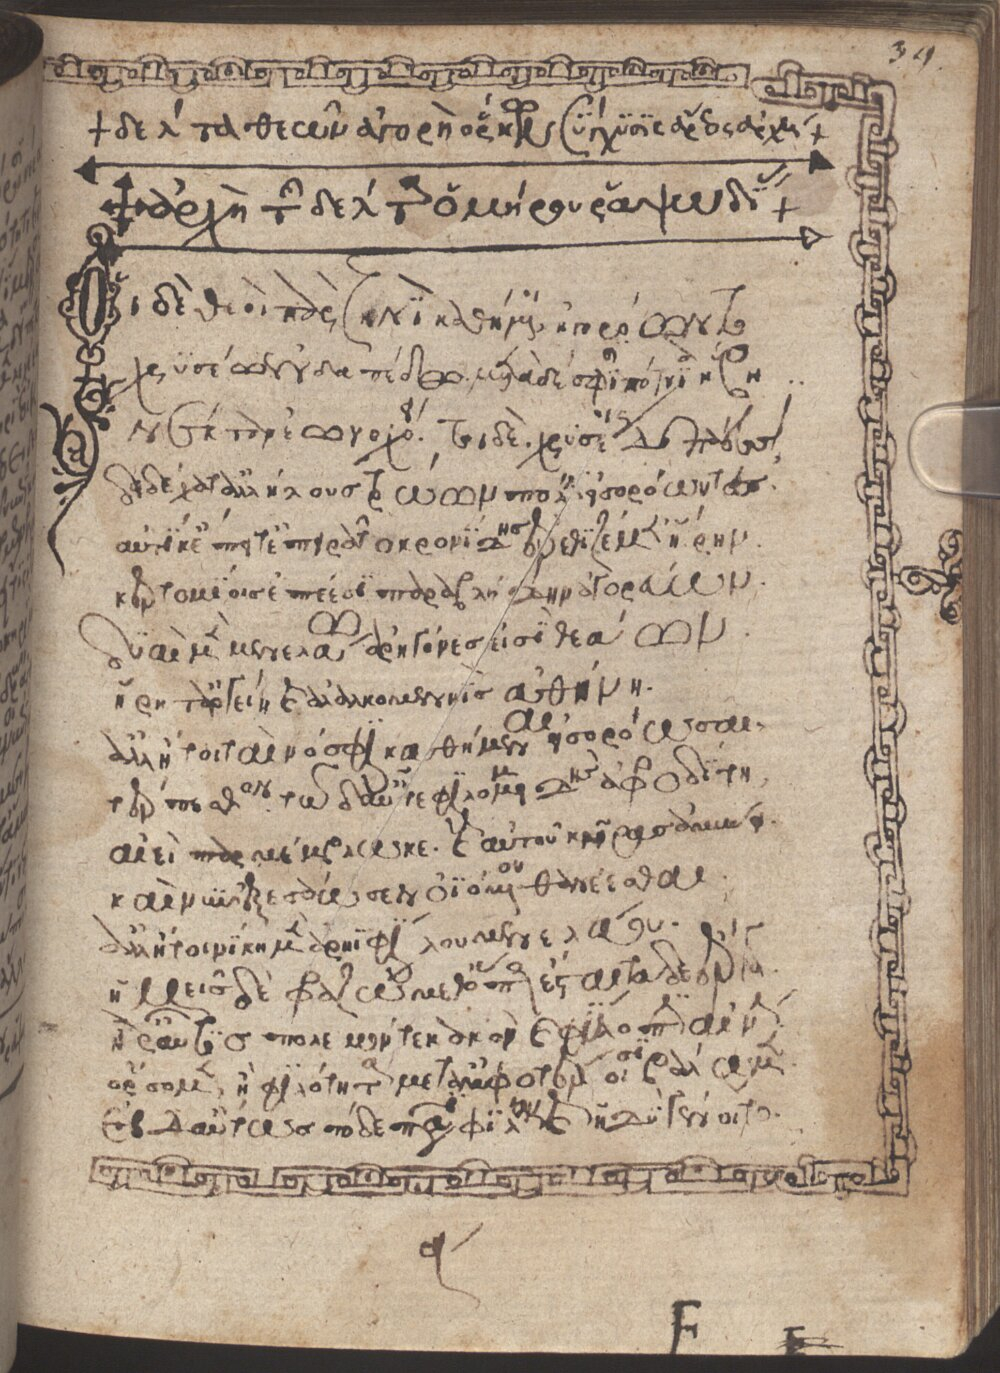 39
+ δέλτα θεῶν ἀγορὴ ὅρκων χύσις ἄρεος ἀρχή +
+ ἀρχὴ τῆς δέλτα ὁμήρου ῥαψωδίας +
Οἱ δὲ θεοὶ πὰρ ζηνὶ καθήμενοι ἠγορόωντο
χρυσέω ἐν δαπέδω. μετὰ δέ σφισι πότνια ἥβη
νέκταρ ἐωνοχόει. τοὶ δὲ χρυσέοις δεπάεσσι
δειδέχατ' ἀλλήλους τρώων πόλιν εἰσορόωντες.
αὐτίκ' ἐπειρᾶτο κρονίδης ἐρεθιζέμεν ἥρην.
κερτομίοις ἐπέεσσι παραβλήδην ἀγορεύων.
δοιαὶ μὲν μενελάω ἀρηγόνες εἰσὶ θεάων.
ἥρη τ' ἀργείη καὶ ἀλαλκομενηῒς ἀθήνη.
ἀλλ' ἤτοι ταὶ νόσφι καθήμεναι εἰσορόωσαι
τέρπεσθον τῶ δ' αὖτε φιλομειδὴς ἀφροδίτη
αἰεὶ παρμέμβλωκε. καὶ αὐτοῦ κῆρας ἀμύνει.
καὶ νῦν ἐξεσάωσεν ὀϊόμενον θανέεσθαι.
ἀλλ' ἤτοι νίκη μὲν ἀρηϊφίλου μενελάου.
ἡμεῖς δὲ φραζώμεθ' ὅπως ἔσται τάδε ἔργα.
ἤ ῥ' αὖτις πόλεμόν τε κακὸν καὶ φύλοπιν αἰνὴν
ὄρσομεν, ἢ φιλότητα μετ' ἀμφοτέροισι βάλωμεν.
εἰ δ' αὔτως τόδε πᾶσι φίλον καὶ ἡδὺ γένοιτο.